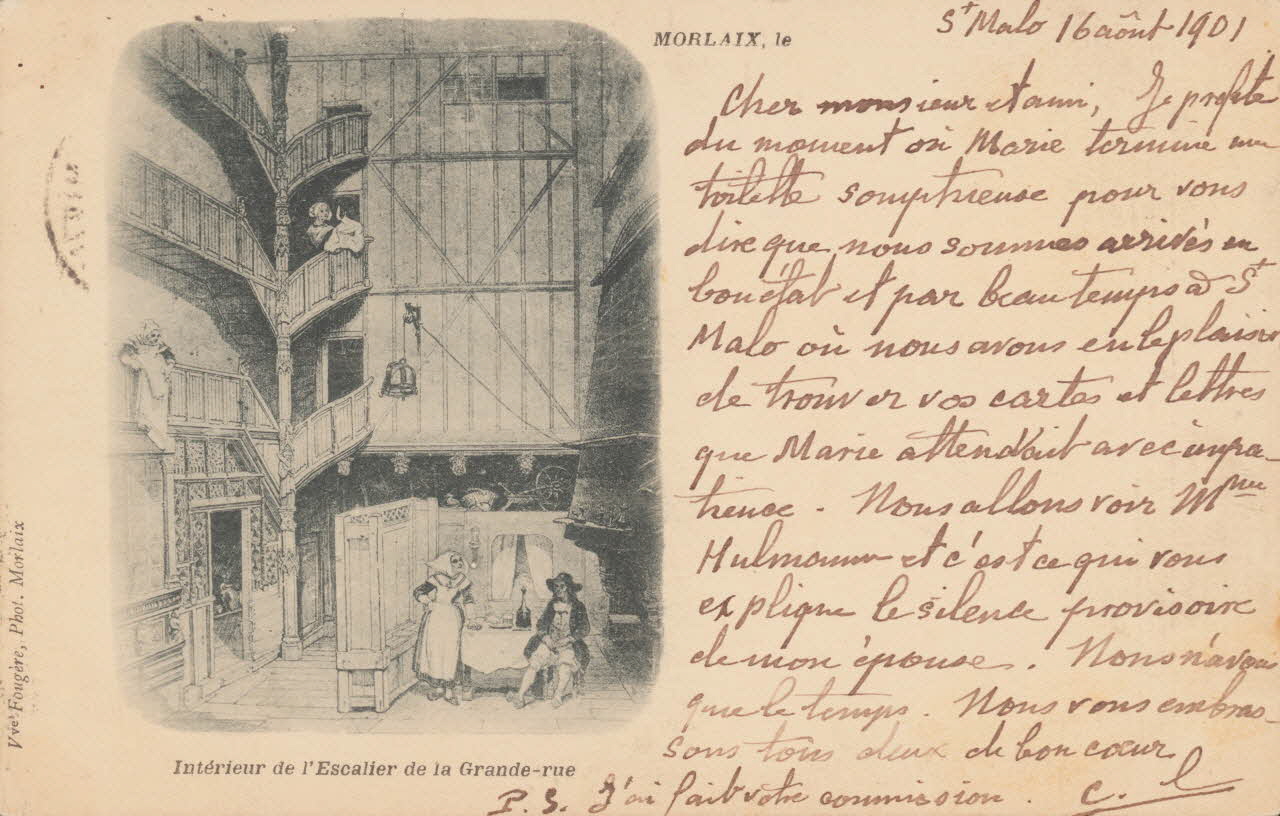 MORLAIX, le
St Malo 16 août 1901
Cher monsieur et ami, Je profite
du moment où Marie termine une
toilette somptueuse pour vous
dire que nous sommes arrivés en
bon état et par beau temps à St
Malo où nous avons eu le plaisir
de trouver vos cartes et lettres
que Marie attendait avec impa-
tience. Nous allons voir Mme
Hulmann et c'est ce qui vous
explique le silence provisoire
de mon épouse. Nous n'avons
que le temps. Nous vous embras-
sons tous deux de bon cœur
P.S. J'ai fait votre commission. C. L
Intérieur de l'Escalier de la Grande-rue
Vve Fougère, Phot. Morlaix